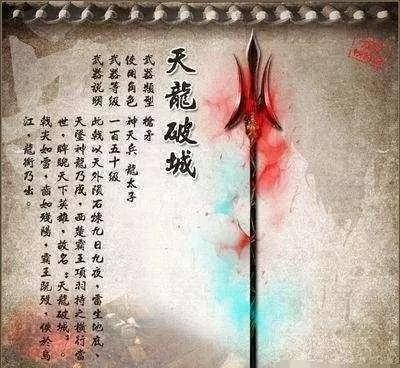 天龍破城
武器類型 槍矛
使用角色 神天兵 龍太子
武器等級 一百五十級
武器說明 此戟以天外隕石煉九日九夜，雷生地底、
天墜神龍乃成，西楚霸王項羽持之橫行當
世，睥睨天下英雄，故名：天龍破城。。
戟尖如雪，齒如殘陽，霸王既歿，佚於烏
江，龍銜乃出。